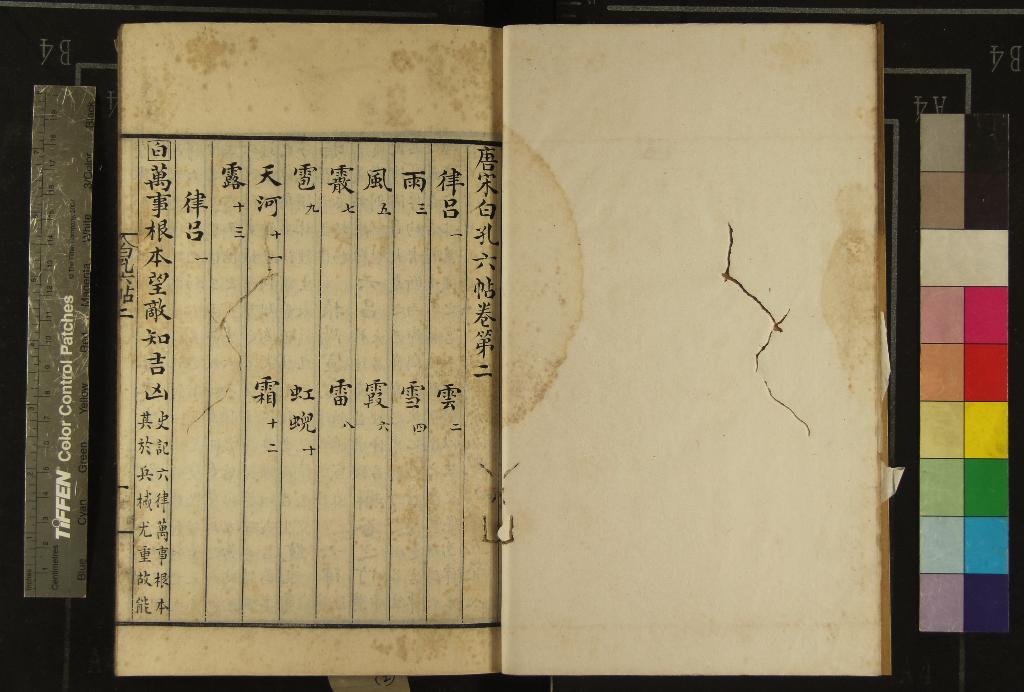 唐宋白孔六帖卷第二
律呂一 雲二
雨三 雪四
風五 霞六
霰七 雷八
雹九 虹蜺十
天河十一 霜十二
露十三
律呂一
白 萬事根本望敵知吉凶 史記六律萬事根本
其於兵械尤重故能
白孔六帖二
TIFFEN Color Control Patches
Blue Cyan Green Yellow Red Magenta White 3/Color Black
Inches
Centimetres
B4
B4
A4